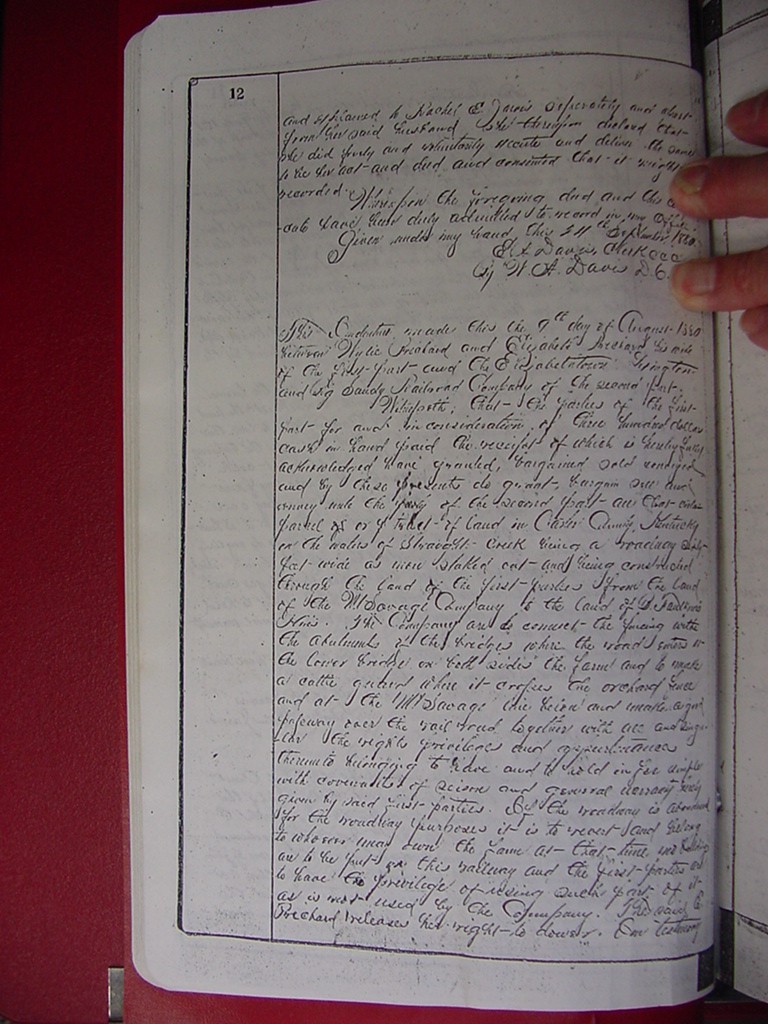 12
and explained to Rachel E Jarvis seperately and apart
from her said husband She thereupon declared that
she did freely and voluntarily execute and deliver the same
to be her act and deed and consented that it might
recorded. Whereupon the foregoing deed and this
cate have been duly admitted to record in my office
Given under my hand this September 1880
Davis, Clerk
by W. A. Davis D.C.
This Indenture made this the 9th day of August 1880
between Wylie Prichard and Elizabeth Prichard his wife
of the first part and the Elizabethtown Lexington
and Big Sandy Railroad Company of the second part.
Witnesseth, that the parties of the first
part for and in consideration of three hundred dollars
cash in hand paid the receipt of which is hereby fully
acknowledged have granted, bargained sold conveyed
and by these presents do grant, bargain sell and
convey unto the party of the second part all that certain
parcel of or tract of land in Carter County, Kentucky
on the waters of Straight Creek being a roadway sixty
feet wide as now staked out and being constructed
through the land of the first parties from the land
of the Mt Savage Company to the land of
Heirs. The Company are to connect the fencing with
the abutments of the bridges where the road enters
the lower bridge on both sides the farm and to make
a cattle guard where it crosses the orchard fence
and at the Mt Savage line and make a good
passway over the rail road together with all and singu-
lar the rights privileges and appurtenances
thereunto belonging to have and to hold in fee simple
with covenants of seizen and general warranty
given by said first parties. If the roadway is abandoned
for the roadway purposes it is to revert and belong
to whoever may own the farm at that time
are to be put on this railway and the first parties are
to have the privilege of using such part of it
as is not used by the Company. The said E
Prichard releases her right to dower. In testimony